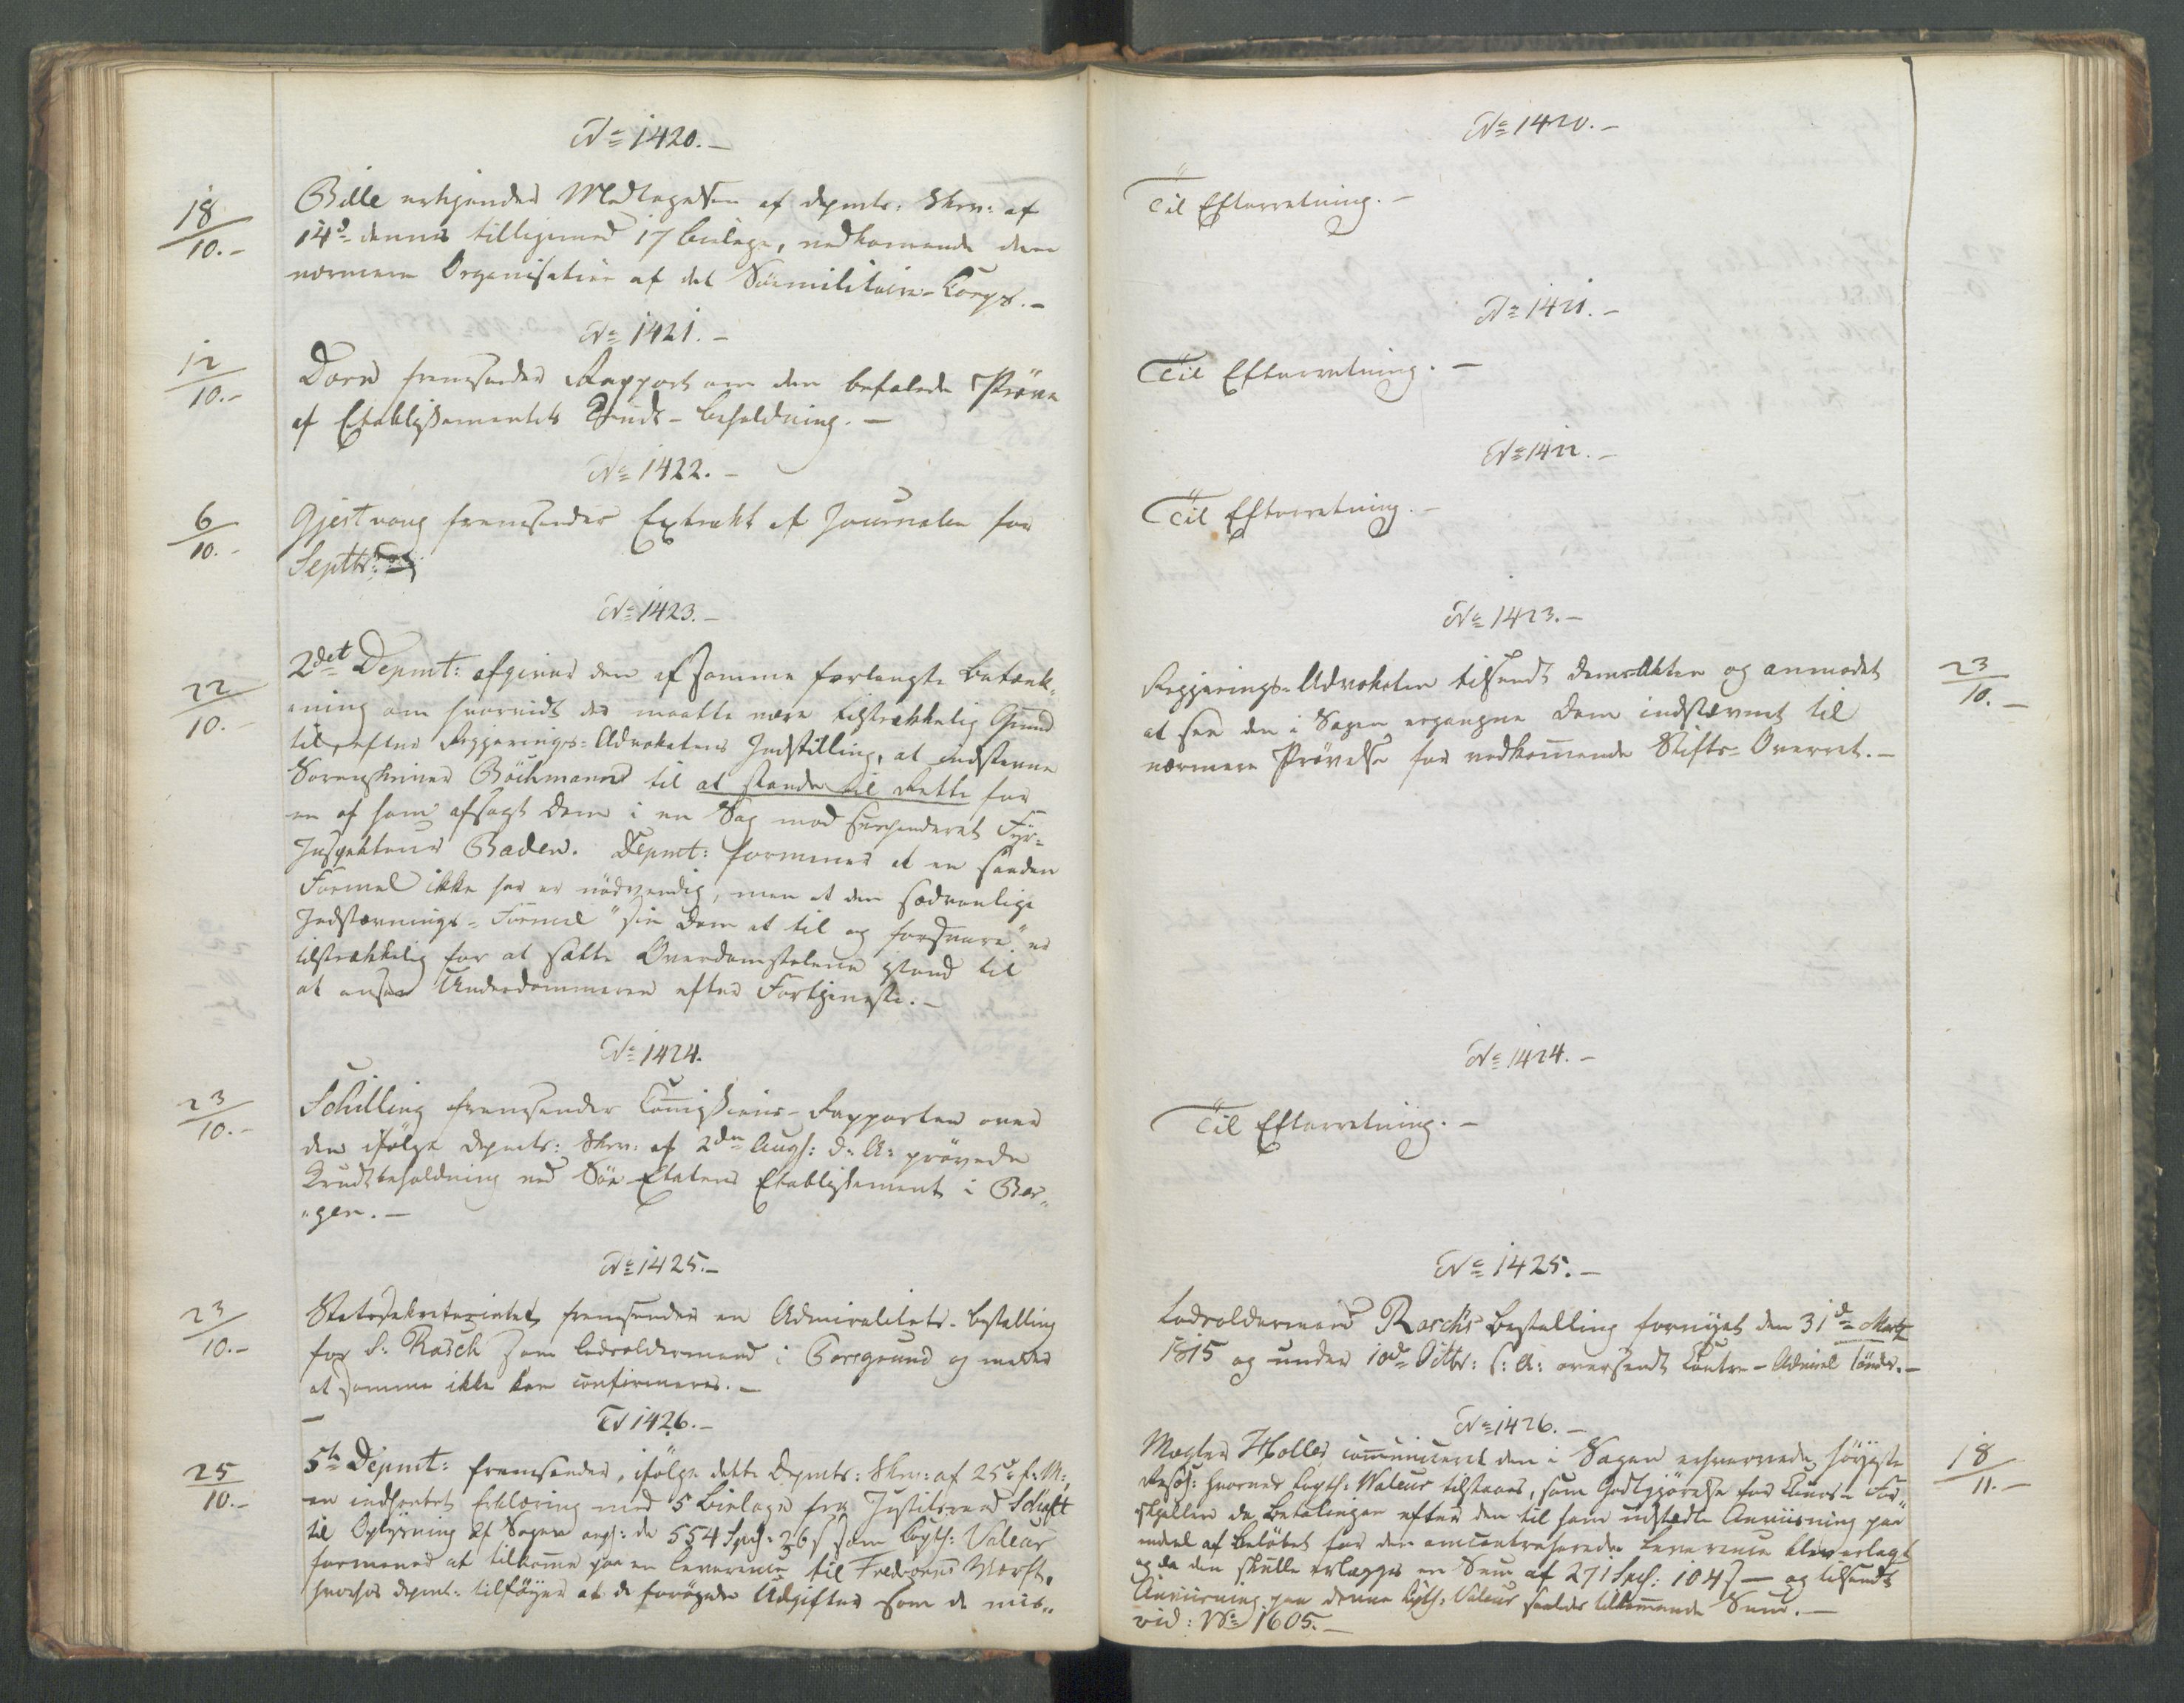 No 1420.-
18/10.-
Bille erkjender Modtagelsen af Depmts: Skrv: af
14d dennes tilligemed 17 Bielage, vedkomende den
nærmere Organisation af det Söemilitaire-Corps.-
No 1421.-
12/10.-
Dorn fremsender Rapport om den befalede Pröve
af Etablissementets Kruds-beholdning.-
No 1422.-
6/10.-
Gjestvang fremsender Extrakt af Journalen for
Septbr:
No 1423.-
22/10.-
2det Depmt: afgiver den af samme forlangte Betænk-
ning om hvorvidt der maatte være tilstrækkelig Grund
til, efter Regjerings-Advokatens Indstilling, at indstevne
Sorenskriver Böchmann til at stande til Rette for
en af ham afsagt Dom i en Sag mod suspenderet Fyr-
Inspekteur Baden. Depmt: formener at en saadan
Formel ikke her er nödvendig, men at den sædvanlige
Indstævnings-Formel "sin Dom at til og forsvare" er
tilstrækkelig for at sætte Overdomstolene istand til
at ansee Underdommeren efter Fortjeneste.-
No 1424.
23/10.-
Schilling fremsender Comissions-Rapporten over
den ifölge Depmts: Skrv: af 2den Augs: d: A: prövede
Krudtbeholdning ved Söe-Etatens Etablissement i Ber-
gen.-
No 1425.-
23/10.-
Statssekretariatet fremsender en Admiralitets-Bestalling
for S. Rasch som Lodsoldermand i Porsgrund og melder
at samme ikke kan confirmeres.-
No 1426.-
25/10.-
5te Depmt: fremsender, ifölge dette Depmts: Skrv: af 25d f: M:,
en indhentet Erklæring med 5 Bielage fra Justitsraad Schift
til Oplysning af Sagen ang: de 554 Spd: 36 s som Capt: Valeur
formener at tilkomme paa en Leverence til Fredriksværns Værft,
hvorhos Depmt: tilföyer at de forögede Udgifter som de mis-
No 1420.-
Til Efterretning.-
No 1421.-
Til Efterretning.-
No 1422.-
Til Efterretning.-
No 1423.-
Regjerings-Advokaten tilsendt Doms-Akten og anmodet
at see den i Sagen ergangne Dom indstævnet til
nærmere Prövelse for vedkommende Stifts-Overret.-
23/10.-
No 1424.-
Til Efterretning.-
No 1425.-
Lodsoldermand Rasch's Bestalling fornyet den 31d Marts
1815 og under 10d Octbr: s: A: oversendt Contre-Admiral Lönde.-
No 1426.-
Mægler Holler communiceret den i Sagen erhvervede höyeste
Resol: hvorved Capt: Valeur tilstaaes, som Godtgjörelse for Cours-For-
skjellen da Betalingen efter den til ham udstedte Anviisning paa
endeel af Belöbet for den omcontraherede Leverence blev erlagt
og da den skulle erlægges en Sum af 271 Spd: 104 s - og tilsendt
Anviisning paa denne Capt: Valeur saaledes tilkommende Sum.-
vid: No 1605.-
18/11.-